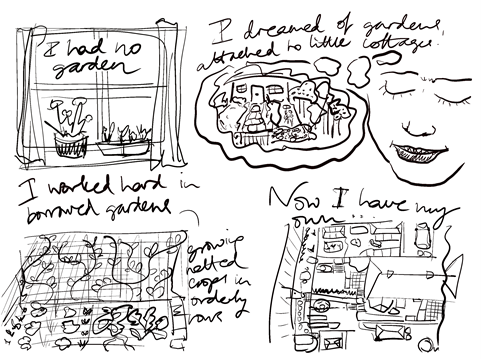 I had no
garden
I dreamed of gardens,
attached to little cottages.
I worked hard in
borrowed gardens
growing
netted
crops in
orderly
rows
Now I have my
own...